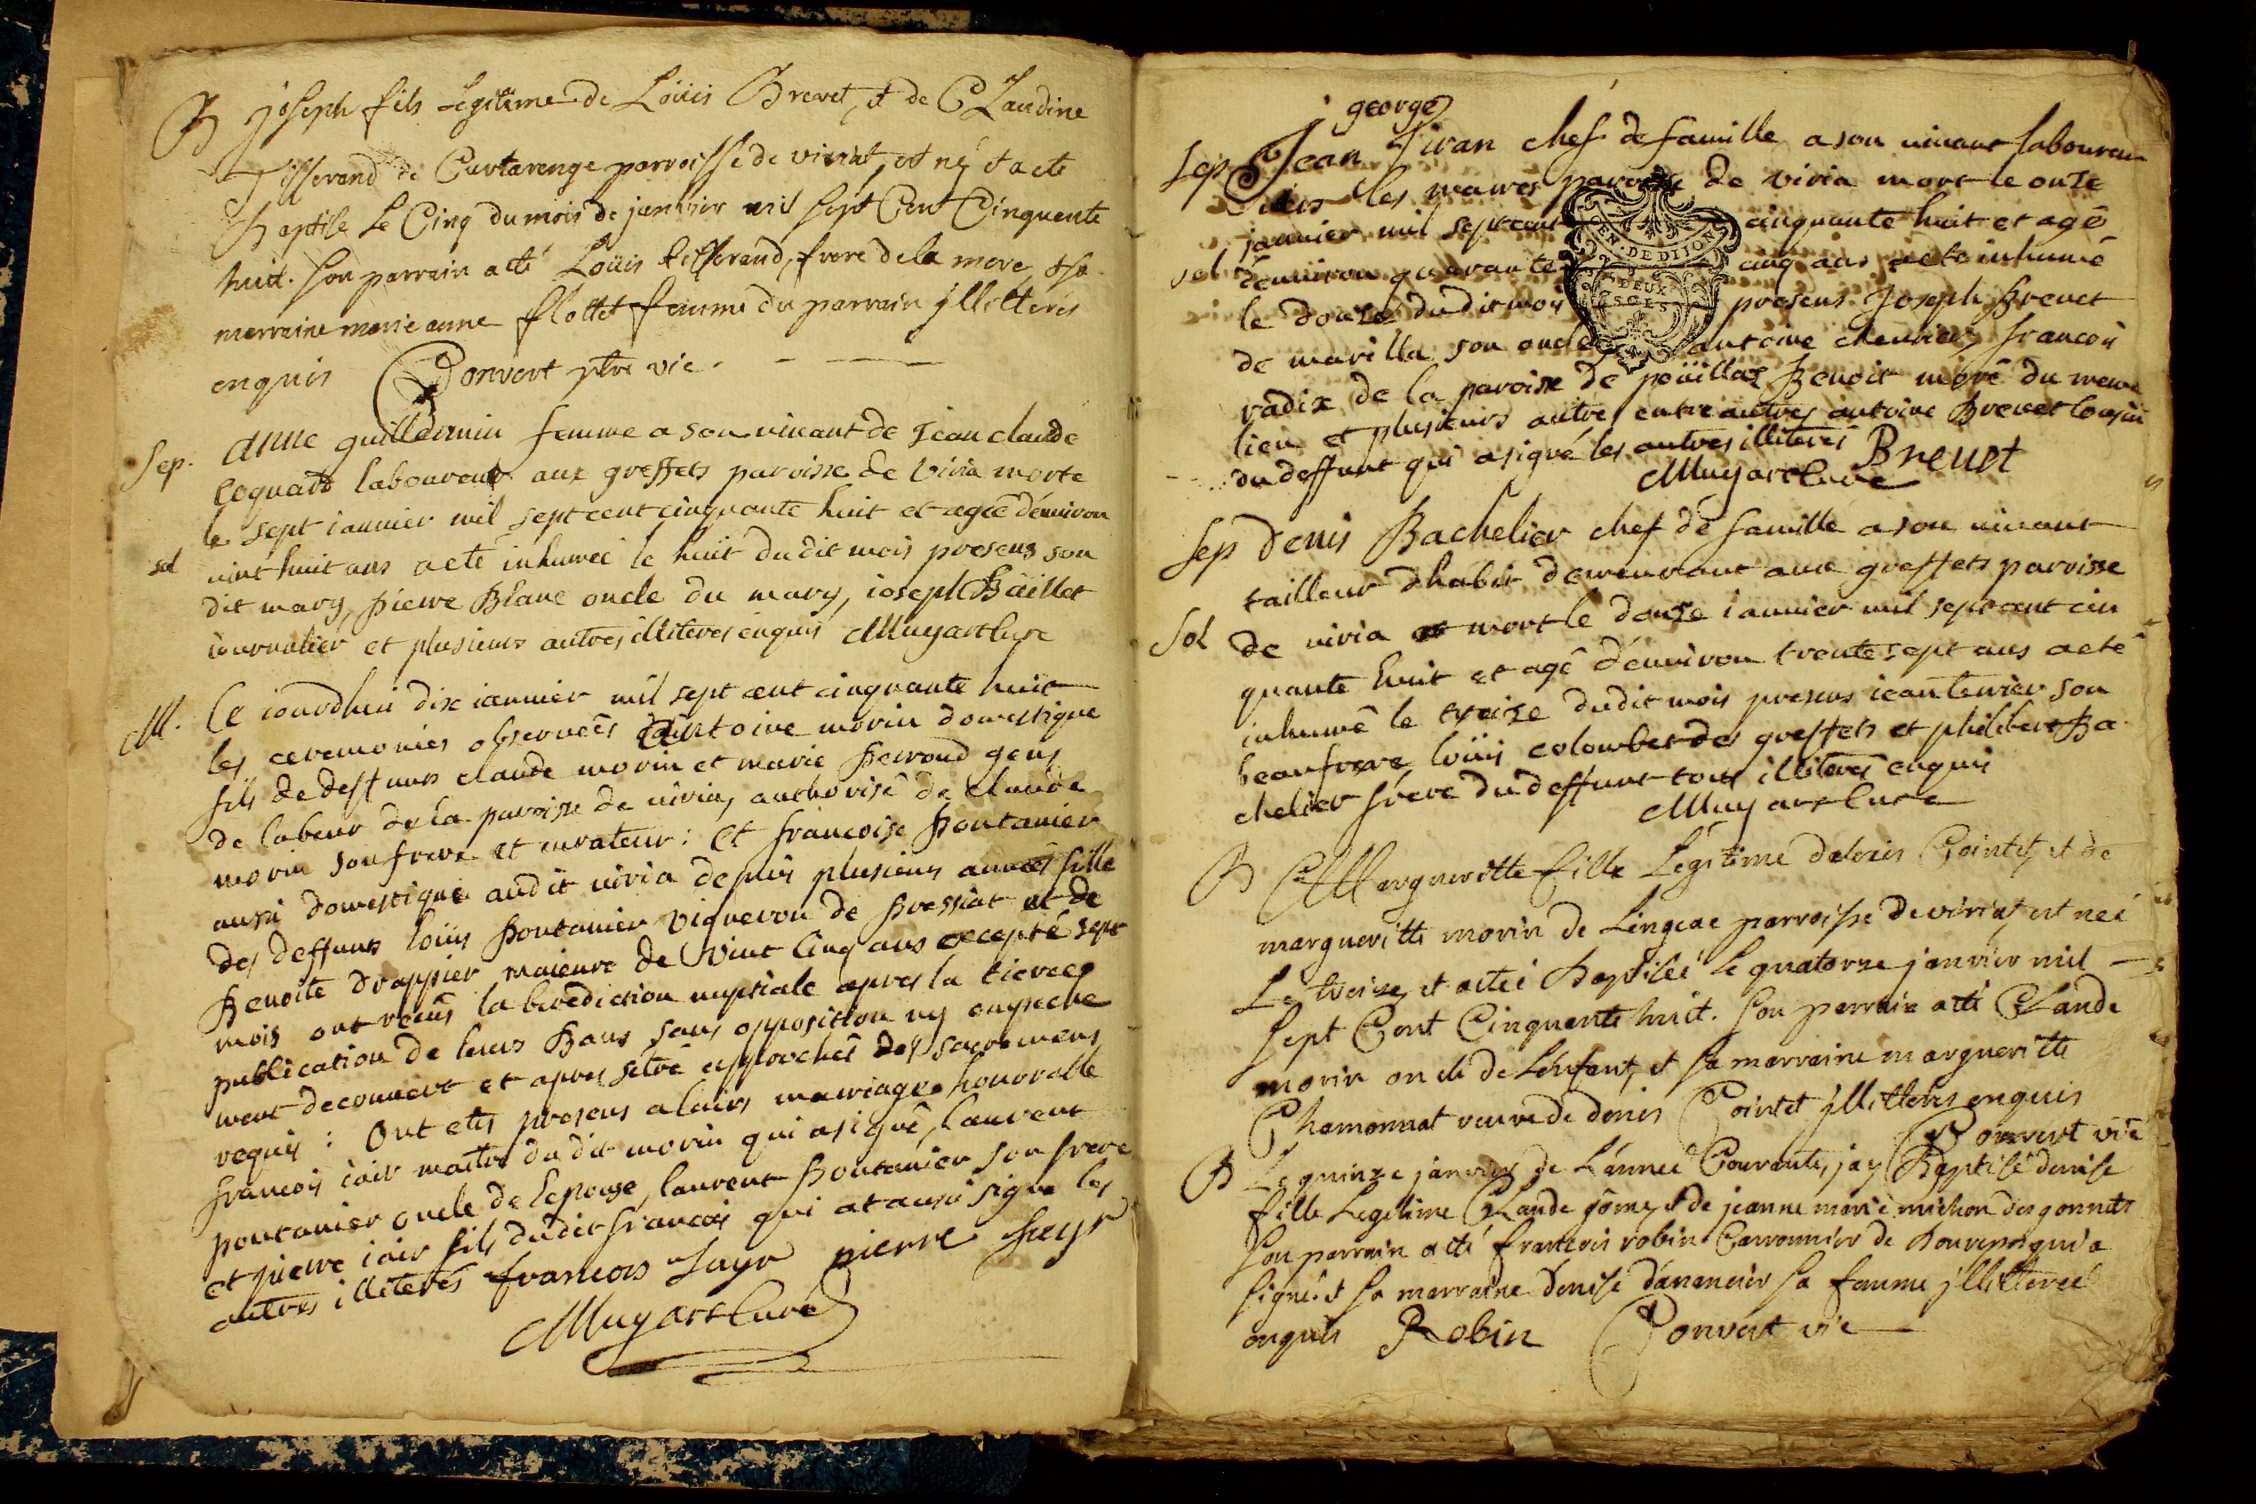 B Joseph fils Legitime de Loüis Brevet, et de CLaudine
Tisserand de Curtarenge parroisse de viriat, est né et a eté
Baptisé Le Cinq du mois de janvier mil sept Cent Cinquente
huit. son parrain a eté Loüis tisserand, frere de la mere, et sa
marraine marie anne flottet femme du parrain jllitterés
enquis Convert ptre vic.
Sep. Anne guillermin femme a son vivant de Jean claude
coquard laboureur aux greffets paroisse de viria morte
le sept ianvier mil sept cent cinquante huit et agée d'environ
sol vint huit ans a eté inhumeé le huit du dit mois presens son
dit mary, pierre Blanc oncle du mary, ioseph Baillet
iournalier et plusieurs autres illiteres enquis Muyart Cure
M. Ce iourdhui dix ianvier mil sept cent cinquante huit
les ceremonies observeés Antoine morin domestique
fils de deffuns claude morin et marie perroud gens
de labeur de la paroisse de viria, authorisé de claude
morin son frere et curateur: et francoise pontanier
aussi domestique audit viria depuis plusieurs anneés fille
des deffuns loüis pontanier vigneron de pressiat et de
Benoite drappier maieure de vint cinq ans excepté sept
mois ont recûs la benediction nuptiale apres la tierce
publication de leurs Bans sans opposition ny empeche
ment decouvert et apres setre approchés des sacremens
requis: Ont etés presens a leurs mariage honorable
francois iair maitre du dit morin qui a signé, laurent
pontanier oncle de lepouse, laurent pontanier son frere
et pierre iair fils dudit francois qui at aussi signe les
autres illiterés francois Jayr pierre Jayr
Muyart Curé
george
Sep Jean Tiran chef de famille a son vivant laboureur
les mares paroisse de viria mort le onze
janvier mil septcent cinquante huit et agé
sol d'environ quarante cinq ans a eté inhumé
le douze dudit mois presens Joseph Brevet
de marilla son oncle antoine chevrier, francois
radix de la paroisse de poüillaz Benoit moré du meme
lieu et plusieurs autres entre autres antoine Brevet cousin
du deffunt qui a signé les autres illiterés Brevet
Muyart Cure
EN. DE DIJON
DEUX
Sep Denis Bachelier chef de famille a son vivant
tailleur d'habit demeurant aux greffets paroisse
Sol de viria mort le douze ianvier mil sept cent cin
quante huit et agé d'environ trente sept ans a eté
inhumé le treize dudit mois presens iean tenier son
beaufrere loüis colombet des greffets et philibert Ba
chelier frere du deffunt tous illiterés enquis
Muyart Cure
B Margueritte fille Legitime de Loüis Cointet, et de
margueritte morin de Lingeat parroisse de viriat, est neé
Le treize, et a eteé Baptiseé le quatorze janvier mil
sept Cent Cinquente huit. son parrain a eté CLaude
morin oncle de L'enfant, et sa marraine margueritte
Chamonnat veuve de denis Cointet jllitterés enquis
Convert vic
B Le quinze janvier de L'anneé Courante, jay Baptisé denise
fille Legitime CLaude gôme, et de jeanne marie michon des gonnets
son parrain a eté francois robin Carronnier de Bourepos qui a
signé. et sa marraine denise danancier sa femme jllittereé
enquis Robin Convert vic